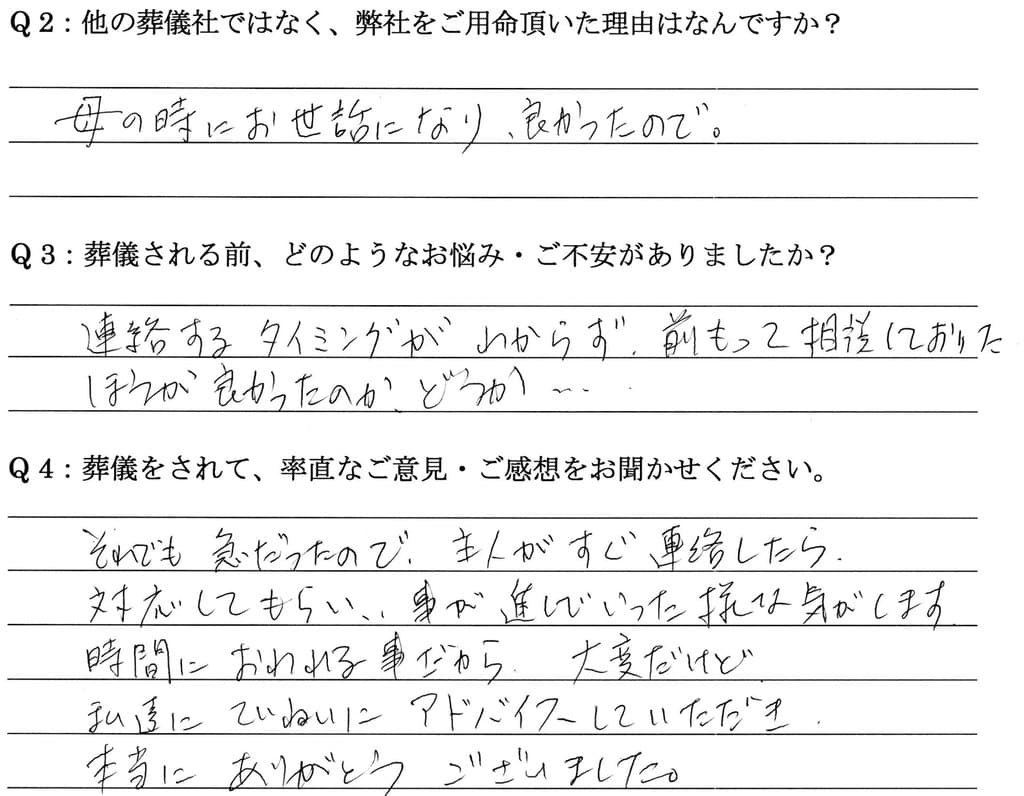 Q2：他の葬儀社ではなく、弊社をご用命頂いた理由はなんですか？
母の時にお世話になり、良かったので。
Q3：葬儀される前、どのようなお悩み・ご不安がありましたか？
連絡するタイミングがわからず、前もって相談しておいた
ほうが良かったのか、どうか…
Q4：葬儀をされて、率直なご意見・ご感想をお聞かせください。
それでも急だったので、主人がすぐ連絡したら、
対応してもらい、、事が進んでいった様な気がします。
時間におわれる事だから、大変だけど
私達にていねいにアドバイスしていただき、
本当にありがとうございました。